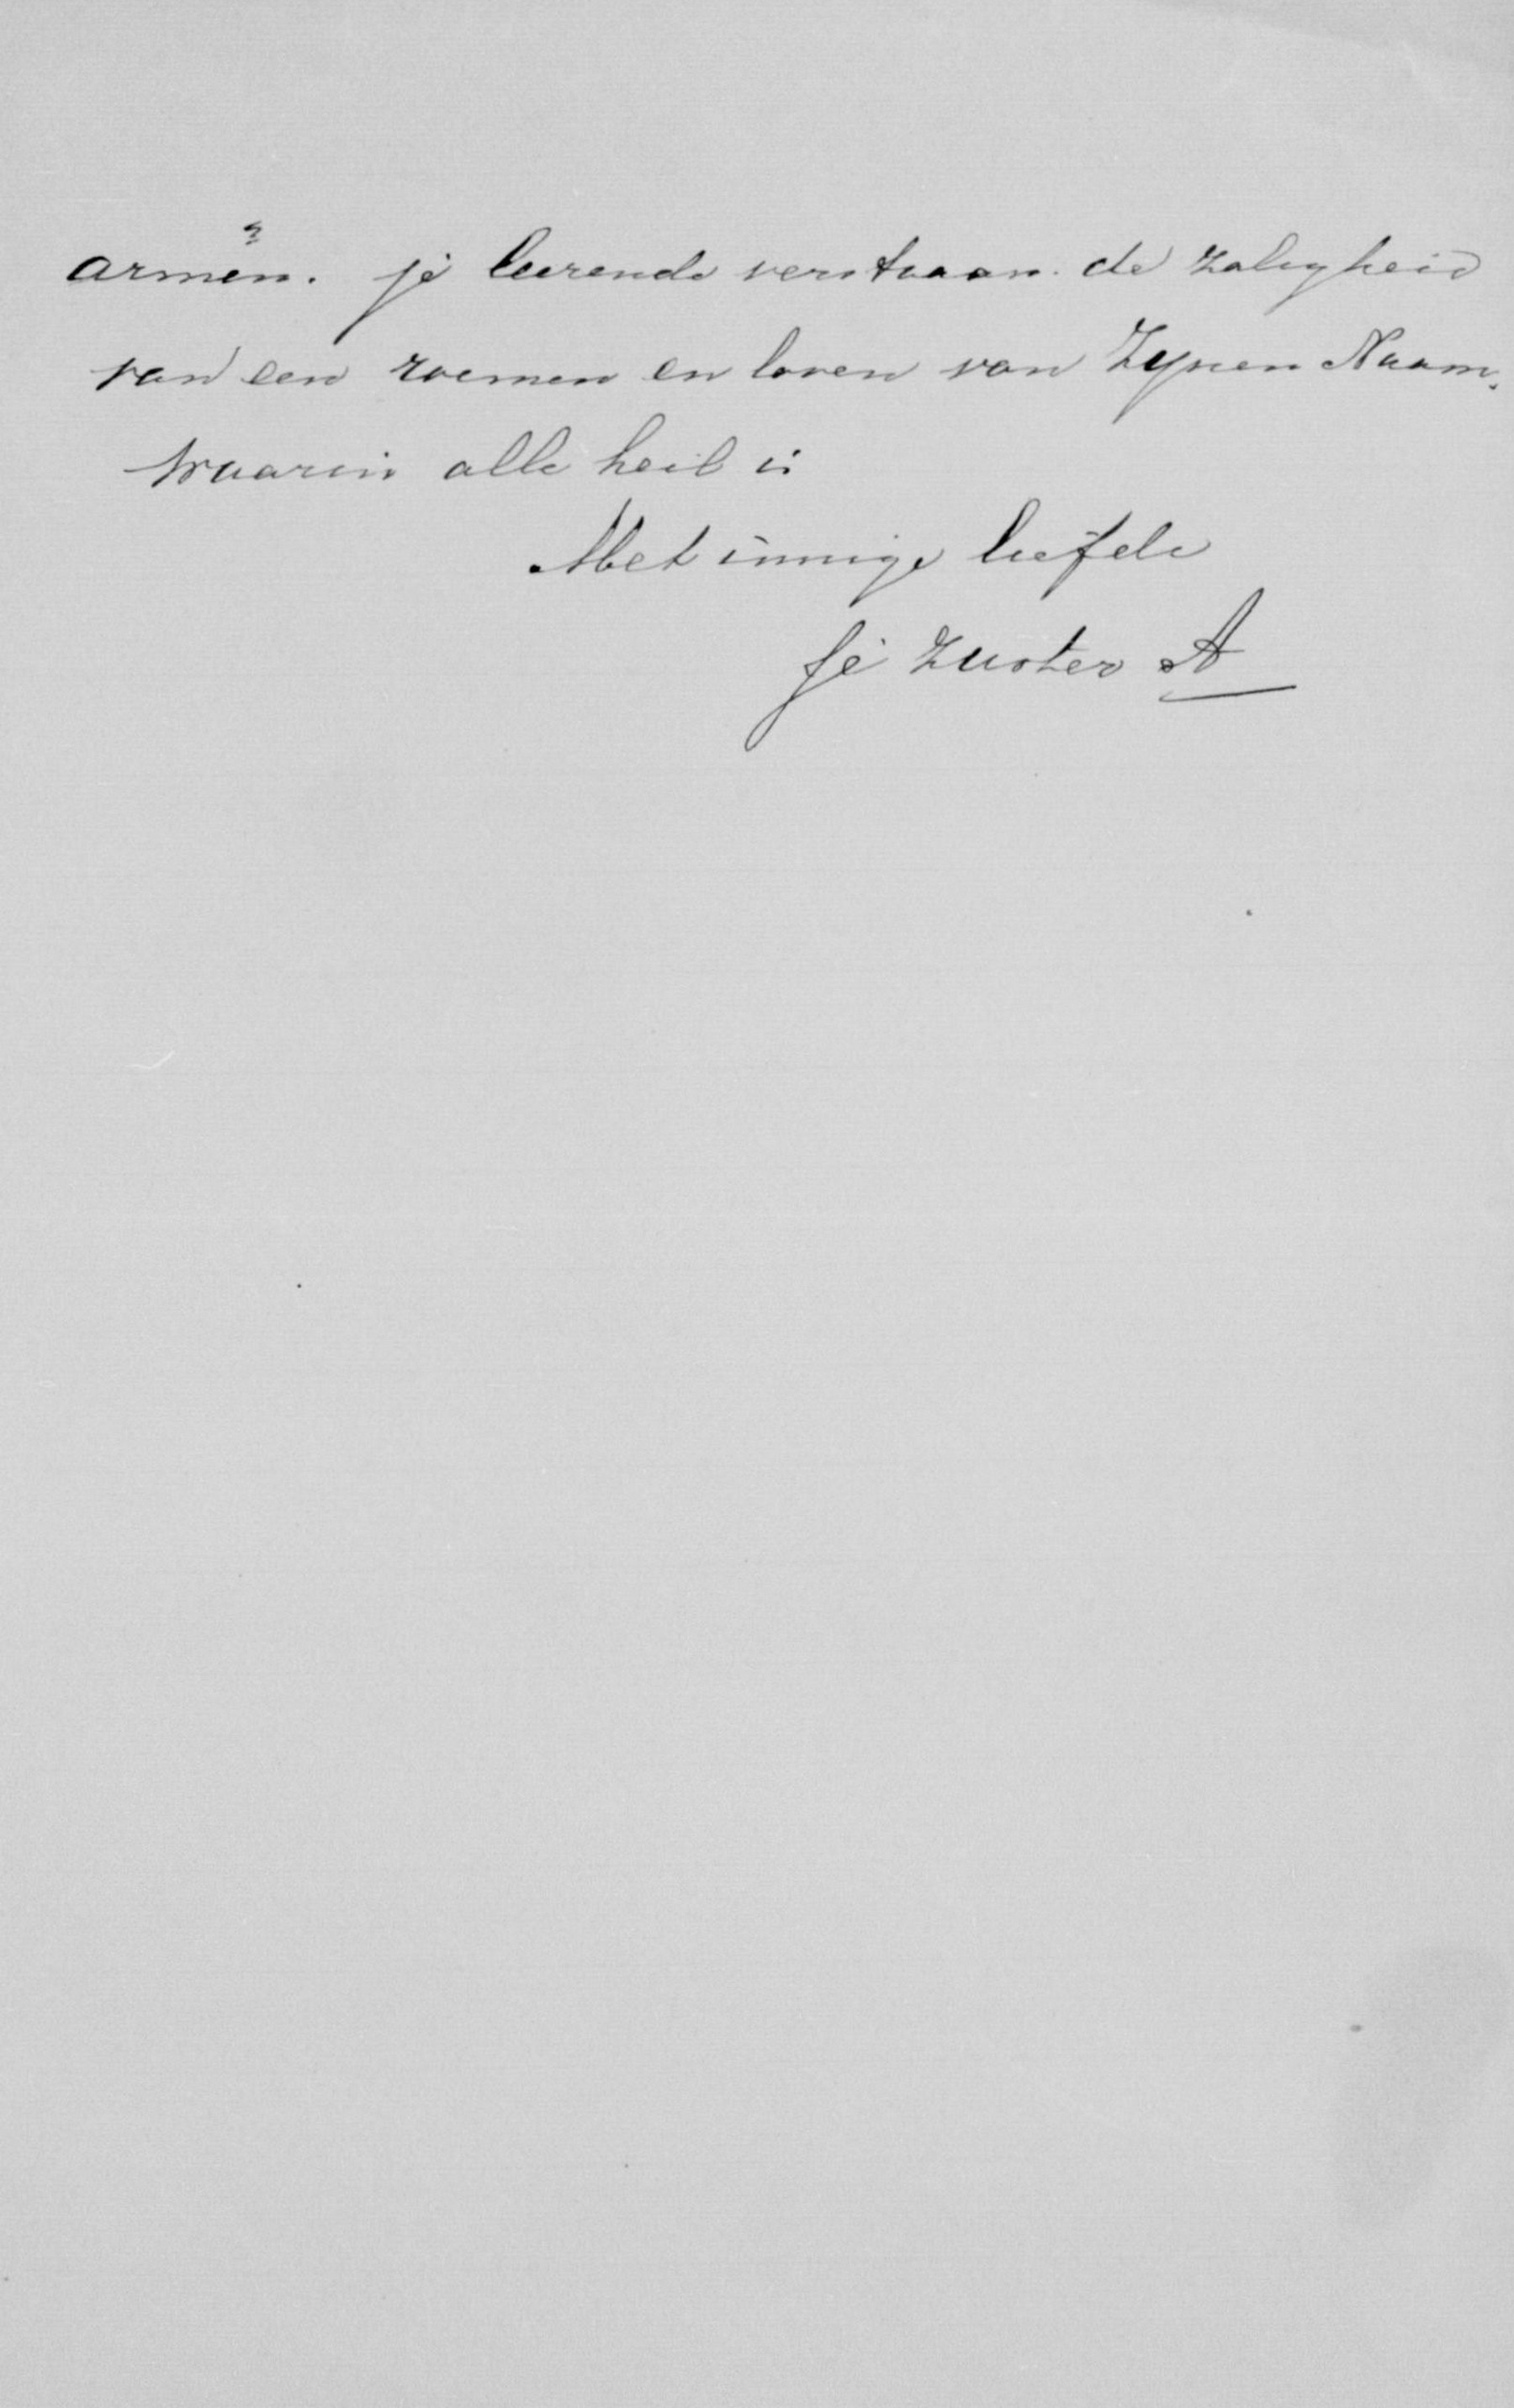 armen. je leerende verstaan de zaligheid
van een roemen en loven van Zynen Naam.
waarin alle heil is
Met innige liefde
Je zuster A